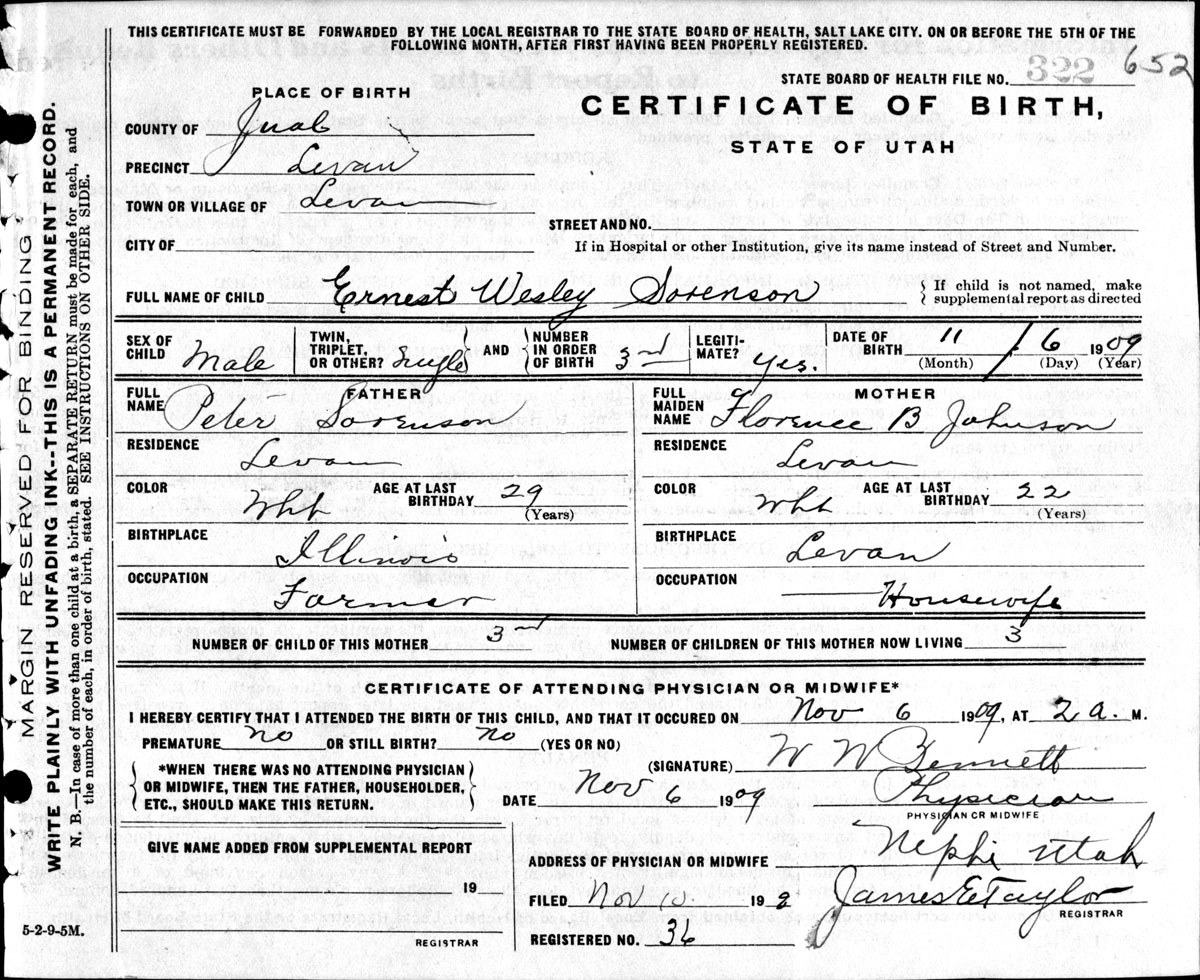 THIS CERTIFICATE MUST BE FORWARDED BY THE LOCAL REGISTRAR TO THE STATE BOARD OF HEALTH, SALT LAKE CITY. ON OR BEFORE THE 5TH OF THE
FOLLOWING MONTH, AFTER FIRST HAVING BEEN PROPERLY REGISTERED.
STATE BOARD OF HEALTH FILE NO. 322 652
PLACE OF BIRTH
CERTIFICATE OF BIRTH,
STATE OF UTAH
COUNTY OF Juab
PRECINCT Levan
TOWN OR VILLAGE OF Levan
STREET AND NO.
CITY OF
If in Hospital or other Institution, give its name instead of Street and Number.
FULL NAME OF CHILD Ernest Wesley Sorenson
If child is not named, make
supplemental report as directed
SEX OF CHILD Male
TWIN, TRIPLET, OR OTHER? Single
AND
NUMBER IN ORDER OF BIRTH 3rd
LEGITI-MATE? Yes.
DATE OF BIRTH 11 / 6 1909
(Month) (Day) (Year)
FATHER
FULL NAME Peter Sorenson
RESIDENCE Levan
COLOR Wht
AGE AT LAST BIRTHDAY 29
(Years)
BIRTHPLACE Illinois
OCCUPATION Farmer
MOTHER
FULL MAIDEN NAME Florence B Johnson
RESIDENCE Levan
COLOR Wht
AGE AT LAST BIRTHDAY 22
(Years)
BIRTHPLACE Levan
OCCUPATION Housewife
NUMBER OF CHILD OF THIS MOTHER 3rd
NUMBER OF CHILDREN OF THIS MOTHER NOW LIVING 3
CERTIFICATE OF ATTENDING PHYSICIAN OR MIDWIFE*
I HEREBY CERTIFY THAT I ATTENDED THE BIRTH OF THIS CHILD, AND THAT IT OCCURED ON Nov 6 1909, AT 2 a. M.
PREMATURE No OR STILL BIRTH? No (YES OR NO)
*WHEN THERE WAS NO ATTENDING PHYSICIAN
OR MIDWIFE, THEN THE FATHER, HOUSEHOLDER,
ETC., SHOULD MAKE THIS RETURN.
(SIGNATURE) W W Bennett
DATE Nov 6 1909
Physician
PHYSICIAN OR MIDWIFE
GIVE NAME ADDED FROM SUPPLEMENTAL REPORT
19
REGISTRAR
ADDRESS OF PHYSICIAN OR MIDWIFE Nephi Utah
FILED Nov 10 19
James E Taylor
REGISTRAR
REGISTERED NO. 36
5-2-9-5M.
MARGIN RESERVED FOR BINDING
WRITE PLAINLY WITH UNFADING INK--THIS IS A PERMANENT RECORD.
N. B.—In case of more than one child at a birth, a SEPARATE RETURN must be made for each, and
the number of each, in order of birth, stated. SEE INSTRUCTIONS ON OTHER SIDE.